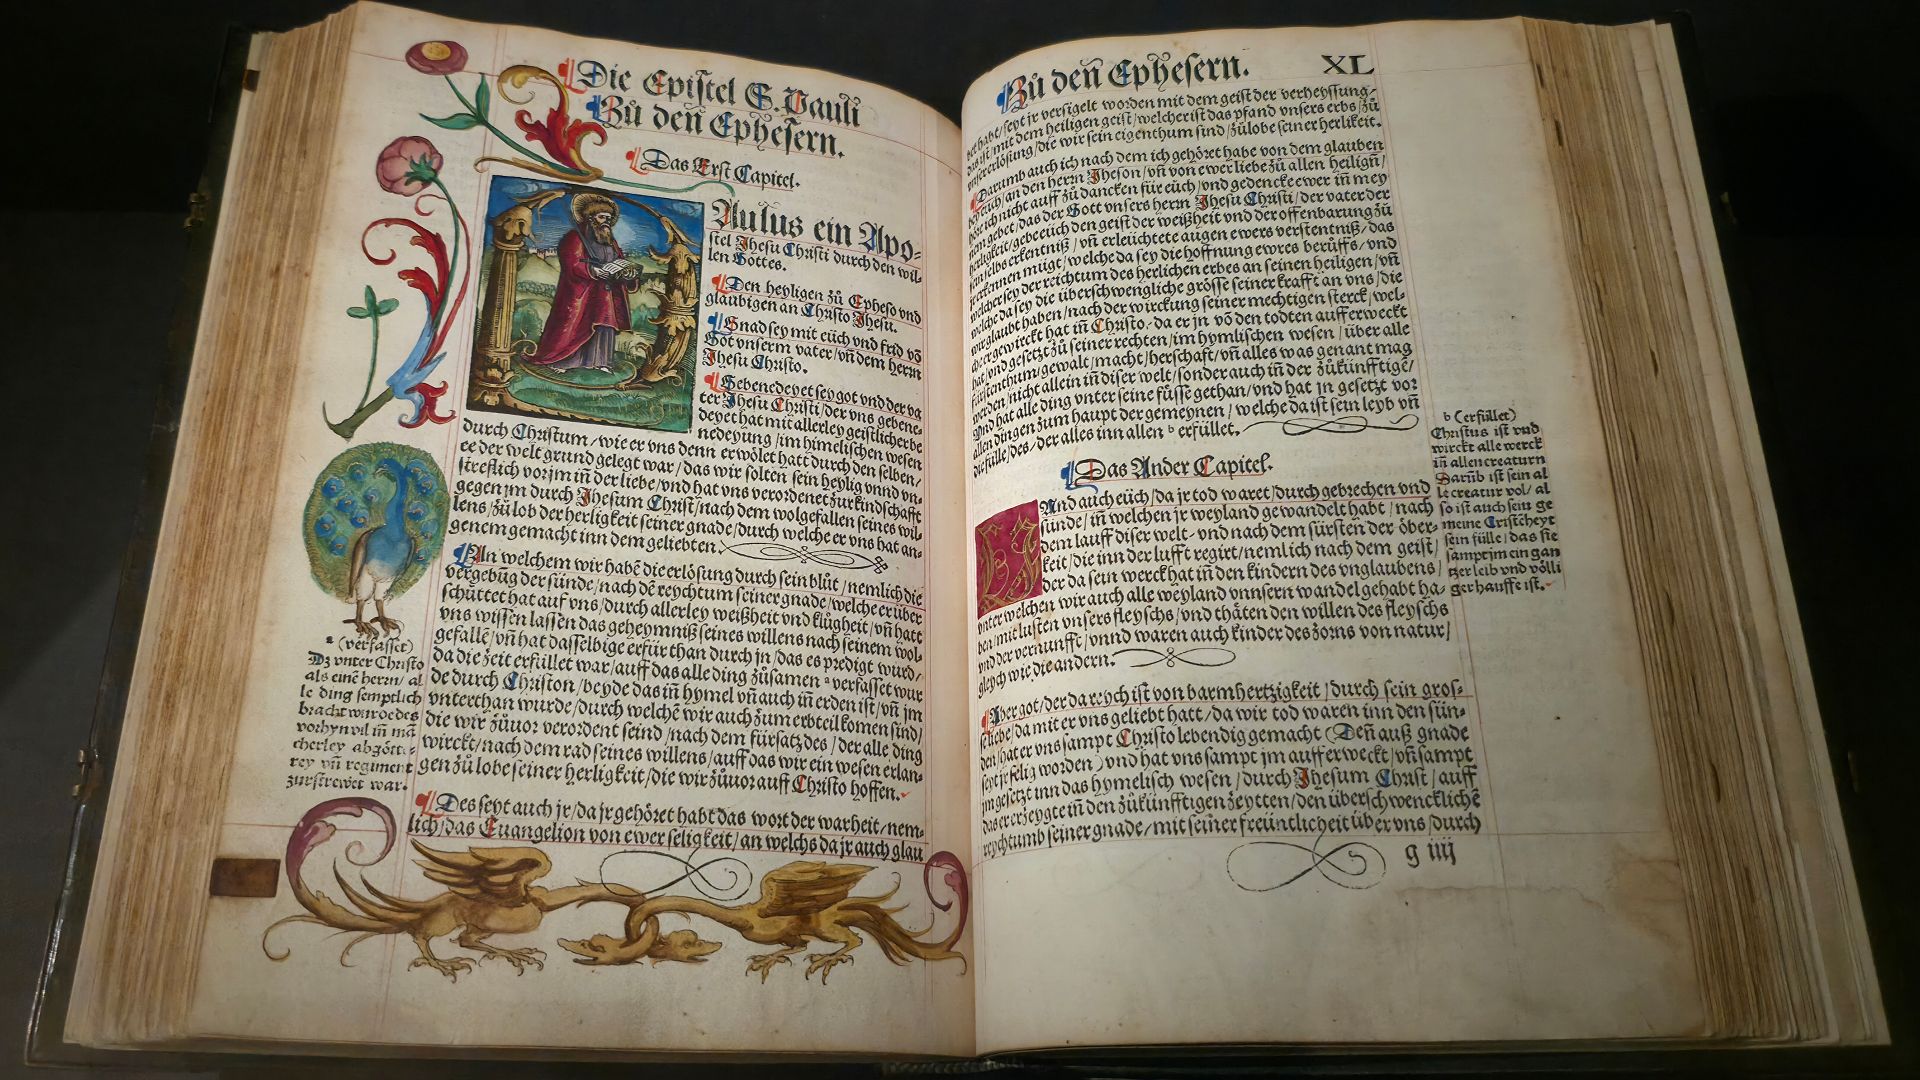 Die Epistel S. Pauli
Zů den̄ Ephesern.
Das Erst Capitel.
Aulus ein Apo-
stel Jhesu Christi durch den wil-
len Gottes.
Den heyligen zů Epheso vnd
glaubigen an Christo Jhesu.
Gnad sey mit eüch vnd frid vō
Got vnserm vater/ vn̄ dem herrn
Jhesu Christo.
Gebenedeyet sey got vnd der va
ter Jhesu Christi/ der vns gebene-
deyet hat mit allerley geistlicher be
nedeyung/ im himelischen wesen
durch Christum/ wie er vns denn erwölet hatt durch den selben/
ee der welt grund gelegt war/ das wir solten sein heylig vnnd vn-
streflich vor jm in̄ der liebe/ vnd hat vns verordenet zur kindschafft
gegen jm durch Jhesum Christ/ nach dem wolgefallen seines wil-
lens/ zů lob der herligkeit seiner gnade/ durch welche er vns hat an-
genem gemacht inn dem geliebten.
An welchem wir habē die erlösung durch sein blůt/ nemlich die
vergebūg der sünde/ nach dē reychtum seiner gnade/ welche er über
schüttet hat auf vns/ durch allerley weißheit vnd klůgheit/ vn̄ hatt
vns wissen lassen das geheymniß seines willens nach seinem wol-
gefallē/ vn̄ hat dasselbige erfür than durch jn/ das es predigt wurd/
da die zeit erfüllet war/ auff das alle ding zůsamen ᵃ verfasset wur
de durch Christon/ beyde das in̄ hymel vn̄ auch in̄ erden ist/ vn̄ jm
vnterthan wurde/ durch welchē wir auch zum erbteil komen sind/
die wir zůuor verordent seind/ nach dem fürsatz des/ der alle ding
wirckt/ nach dem rad seines willens/ auff das wir ein wesen erlan-
gen zů lobe seiner herligkeit/ die wir zůuor auff Christo hoffen.
Des seyt auch jr/ da jr gehöret habt das wort der warheit/ nem-
lich/ das Euangelion von ewer seligkeit/ an welchs da jr auch glau
a (verfasset)
Dz vnter Christo
als einē herrn/ al
le ding semptlich
bracht wurde des
vorhyn vil in̄ mā
cherley abgötte-
rey vn̄ regiment
zurstrewet war.
Zů den̄ Ephesern. XL
bet habt/ seyt jr versigelt worden mit dem geist der verheyssung/
das ist/ mit dem heiligen geist/ welcher ist das pfand vnsers erbs/ zů
vnser erlösung/ die wir sein eigenthum sind/ zů lobe seiner herlikeit.
Darumb auch ich nach dem ich gehöret habe von dem glauben
bey eüch/ an den herrn Jheson/ vn̄ von ewer liebe zů allen heilign̄/
höre ich nicht auff zů dancken für eüch/ vnd gedencke ewer in̄ mey
nem gebet/ das der Gott vnsers herrn Jhesu Christi/ der vater der
herligkeit/ gebe eüch den geist der weißheit vnd der offenbarung zů
sein selbs erkentniß/ vn̄ erleüchtete augen ewers verstentniß/ das
jr erkennen mügt/ welche da sey die hoffnung ewres berůffs/ vnd
welcher sey der reichtum des herlichen erbes an seinen heiligen/ vn̄
welche da sey die überschwengliche grösse seiner krafft an vns/ die
wir glaubt haben/ nach der wirckung seiner mechtigen sterck/ wel-
che er gewirckt hat in̄ Christo/ da er jn vō den todten aufferweckt
hat/ vnd gesetzt zů seiner rechten/ im hymlischen wesen/ über alle
fürstenthum/ gewalt/ macht/ herschaft/ vn̄ alles was genant mag
werden/ nicht allein in̄ diser welt/ sonder auch in̄ der zůkünfftigē/
Und hat alle ding vnter seine füsse gethan/ vnd hat jn gesetzt vor
allen dingen zum haupt der gemeynen/ welche da ist sein leyb vn̄
die fülle/ des/ der alles inn allen ᵇ erfüllet.
Das Ander Capitel.
Und auch eüch/ da jr tod waret/ durch gebrechen vnd
sünde/ in̄ welchen jr weyland gewandelt habt/ nach
dem lauff diser welt/ vnd nach dem fürsten der öber-
keit/ die inn der lufft regirt/ nemlich nach dem geist/
der da sein werck hat in̄ den kindern des vnglaubens/
vnter welchen wir auch alle weyland vnnsern wandel gehabt ha-
ben/ mit lusten vnsers fleyschs/ vnd thäten den willen des fleyschs
vnd der vernunfft/ vnnd waren auch kinder des zorns von natur/
gleych wie die andern.
Aber got/ der da reych ist von barmhertzigkeit/ durch sein gros-
se liebe/ da mit er vns geliebt hatt/ da wir tod waren inn den sün-
den/ hat er vns sampt Christo lebendig gemacht (Den̄ auß gnade
seyt jr selig worden) vnd hat vns sampt jm aufferweckt/ vn̄ sampt
jm gesetzt inn das hymelisch wesen/ durch Jhesum Christ/ auff
das er erzeygte in̄ den zůkünfftigen zeytten/ den überschwencklichē
reychtumb seiner gnade/ mit seiner freüntlicheit über vns/ durch
g iiij
b (erfüllet)
Christus ist vnd
wirckt alle werck
in̄ allen creaturn
Darūb ist sein al
le creatur vol/ al
so ist auch sein ge
meine Cristēheyt
sein fülle/ das sie
sampt jm ein gan
tzer leib vnd völli
ger hauffe ist.